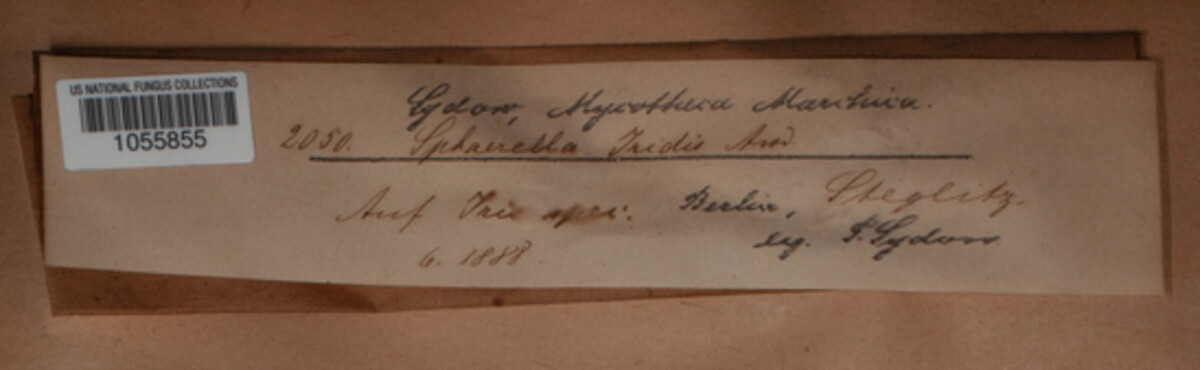 US NATIONAL FUNGUS COLLECTIONS
1055855
Sydow, Mycotheca Marchica.
2050. Sphaerella Iridis Awd.
Auf Iris spec. Berlin, Steglitz.
6. 1888. leg. P. Sydow